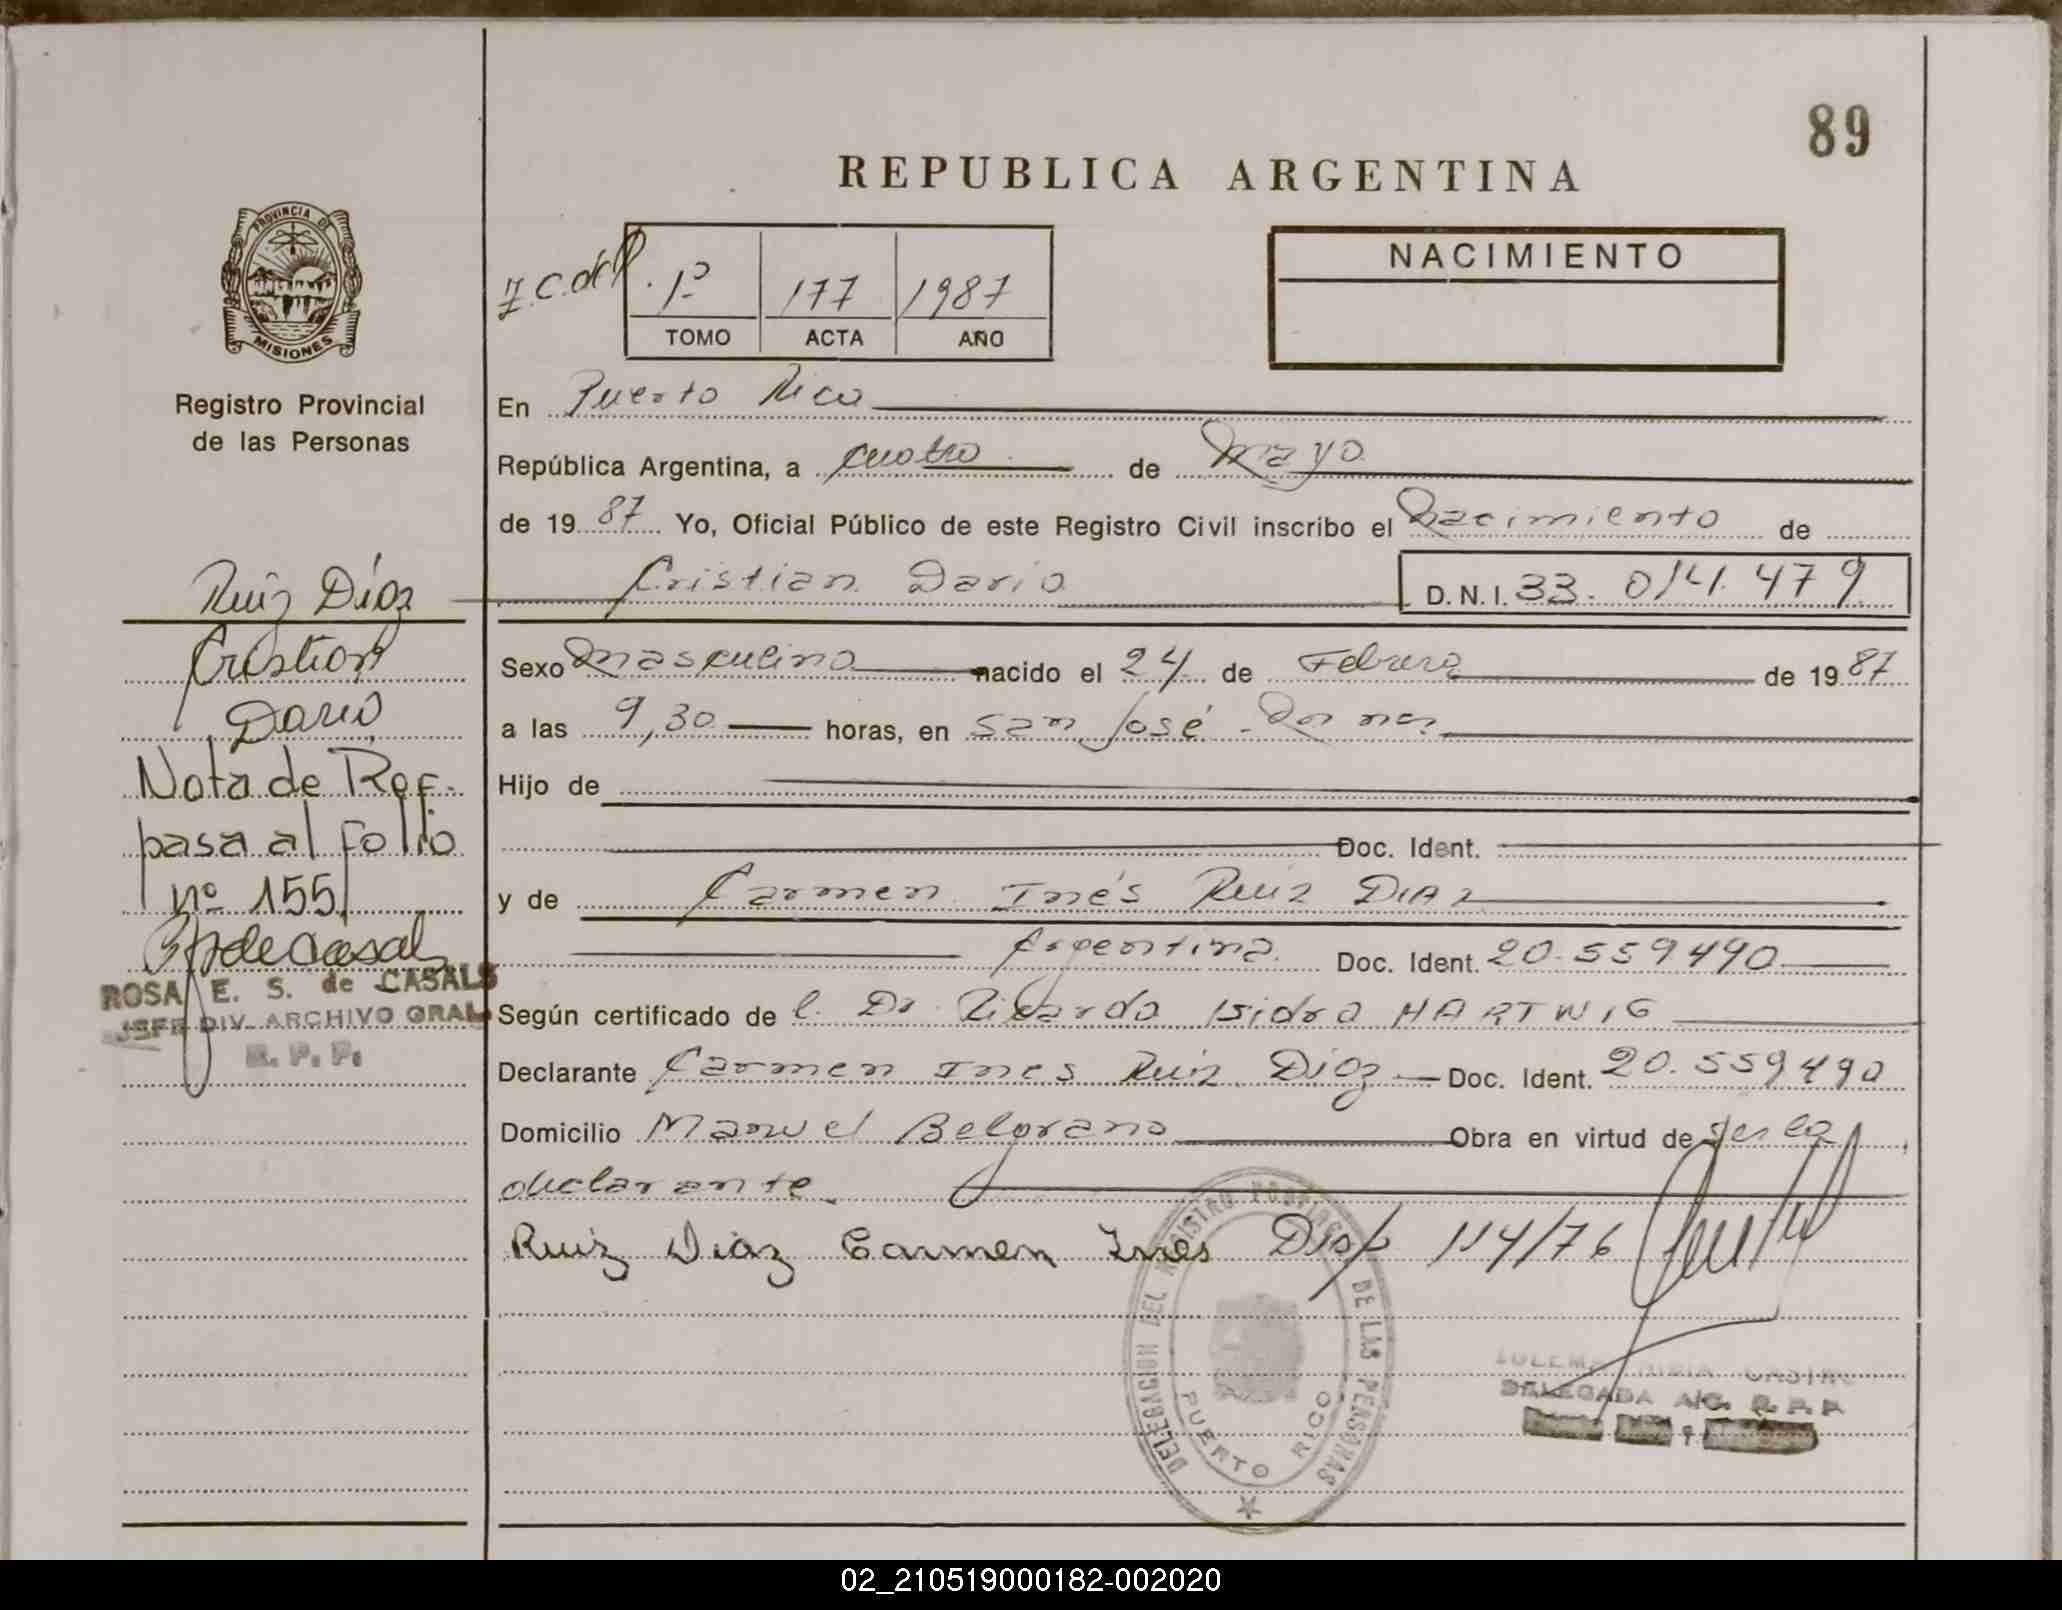 89
REPUBLICA ARGENTINA
PROVINCIA DE
MISIONES
Registro Provincial
de las Personas
1º 177 1987
TOMO ACTA AÑO
NACIMIENTO
En Puerto Rico
República Argentina, a cuatro de Mayo
de 19 87 Yo, Oficial Público de este Registro Civil inscribo el Nacimiento de
Cristian Dario D.N.I. 33.014.479
Sexo Masculino nacido el 24 de Febrero de 19 87
a las 9,30 horas, en San José
Hijo de
Doc. Ident.
y de Carmen Inés Ruiz DIAZ
Argentina Doc. Ident. 20.559490
Según certificado de Dr Ricardo Isidro HARTWIG
Declarante Carmen Ines Ruiz Díaz Doc. Ident. 20.559490
Domicilio Manuel Belgrano Obra en virtud de ser la
declarante.
Ruiz Diaz Carmen Ines Disp 114/76
DELEGACION DEL REGISTRO PROVINCIAL DE LAS PERSONAS
PUERTO RICO
DELEGADA A/C. R. P. P.
Ruiz Díaz
Cristian
Dario
Nota de Ref.
pasa al folio
nº 155
ROSA E. S. de CASALS
JEFE DIV. ARCHIVO GRAL
R. P. P.
02_210519000182-002020